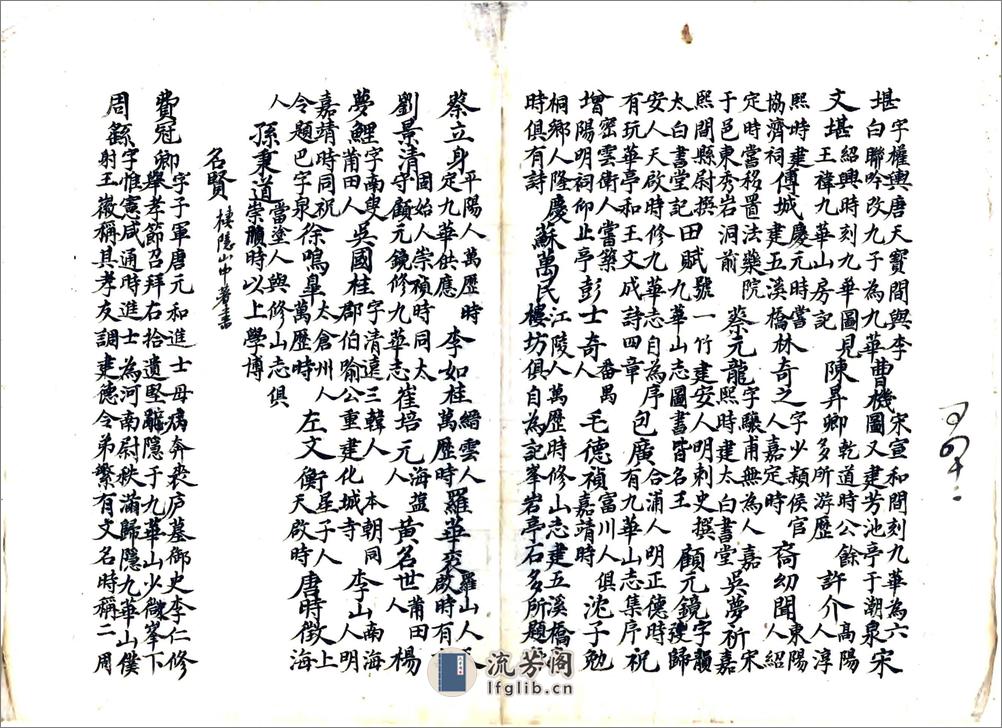 堪字權輿唐天寶間與李白聯吟改九子為九華 曹機宋宣和間刻九華為六圖又建芳池亭于湖泉 宋
文堪紹興時刻九華圖見王禕九華山房記 陳昇卿乾道時公餘多所游歷 許介高陽人淳
熙時建傅城慶元時嘗協濟祠建五溪橋 林奇之字少潁侯官人嘉定時 裔幼聞東陽人紹
定時嘗移置法藥院于邑東秀岩洞前 蔡元龍字驤甫無為人嘉熙時建太白書堂 吳夢祈宋嘉
熙間縣尉撰太白書堂記 田賦號一竹建安人明刺史撰九華山志圖書皆名王 顧元鏡字韻璦歸
安人天啟時修九華志自為序有玩華亭和王文成詩四章 包廣合浦人明正德時有九華山志集序 祝
增密雲衛人嘗築陽明祠仰止亭 彭士奇番禺人 毛德禎富川人俱嘉靖時 沈子勉
桐鄉人隆慶時俱有詩 蘇萬民江陵人萬歷時修山志建五溪橋樓坊俱自為記峯岩亭石多所題
蔡立身平陽人萬歷時定九華供應 李如桂縉雲人萬歷時 羅華衮羅山人天啟時有
劉景清固始人崇禎時同太守顧元鏡修九華志 崔培元海盜人 黃名世莆田人 楊
夢鯉字南叟莆田人 吳國柱字清遠三韓人本朝同郡伯喻公重建化城寺 李山南海人明
嘉靖時同祝令題巴字泉 徐鳴皐太倉州人萬歷時 左文衡星子人天啟時 唐時徵上海
人 孫秉道當塗人與修山志俱崇禎時以上學博
名賢 棲隱山中著書
費冠卿字子軍唐元和進士母病奔喪庐墓御史李仁修舉孝節召拜右拾遺堅辭隱于九華山少微峯下
周繇字惟憲咸通時進士為河南尉秩滿歸隱九華山僕射王徽稱其孝友調建德令弟繁有文名時稱二周
流芳阁
lfglib.cn